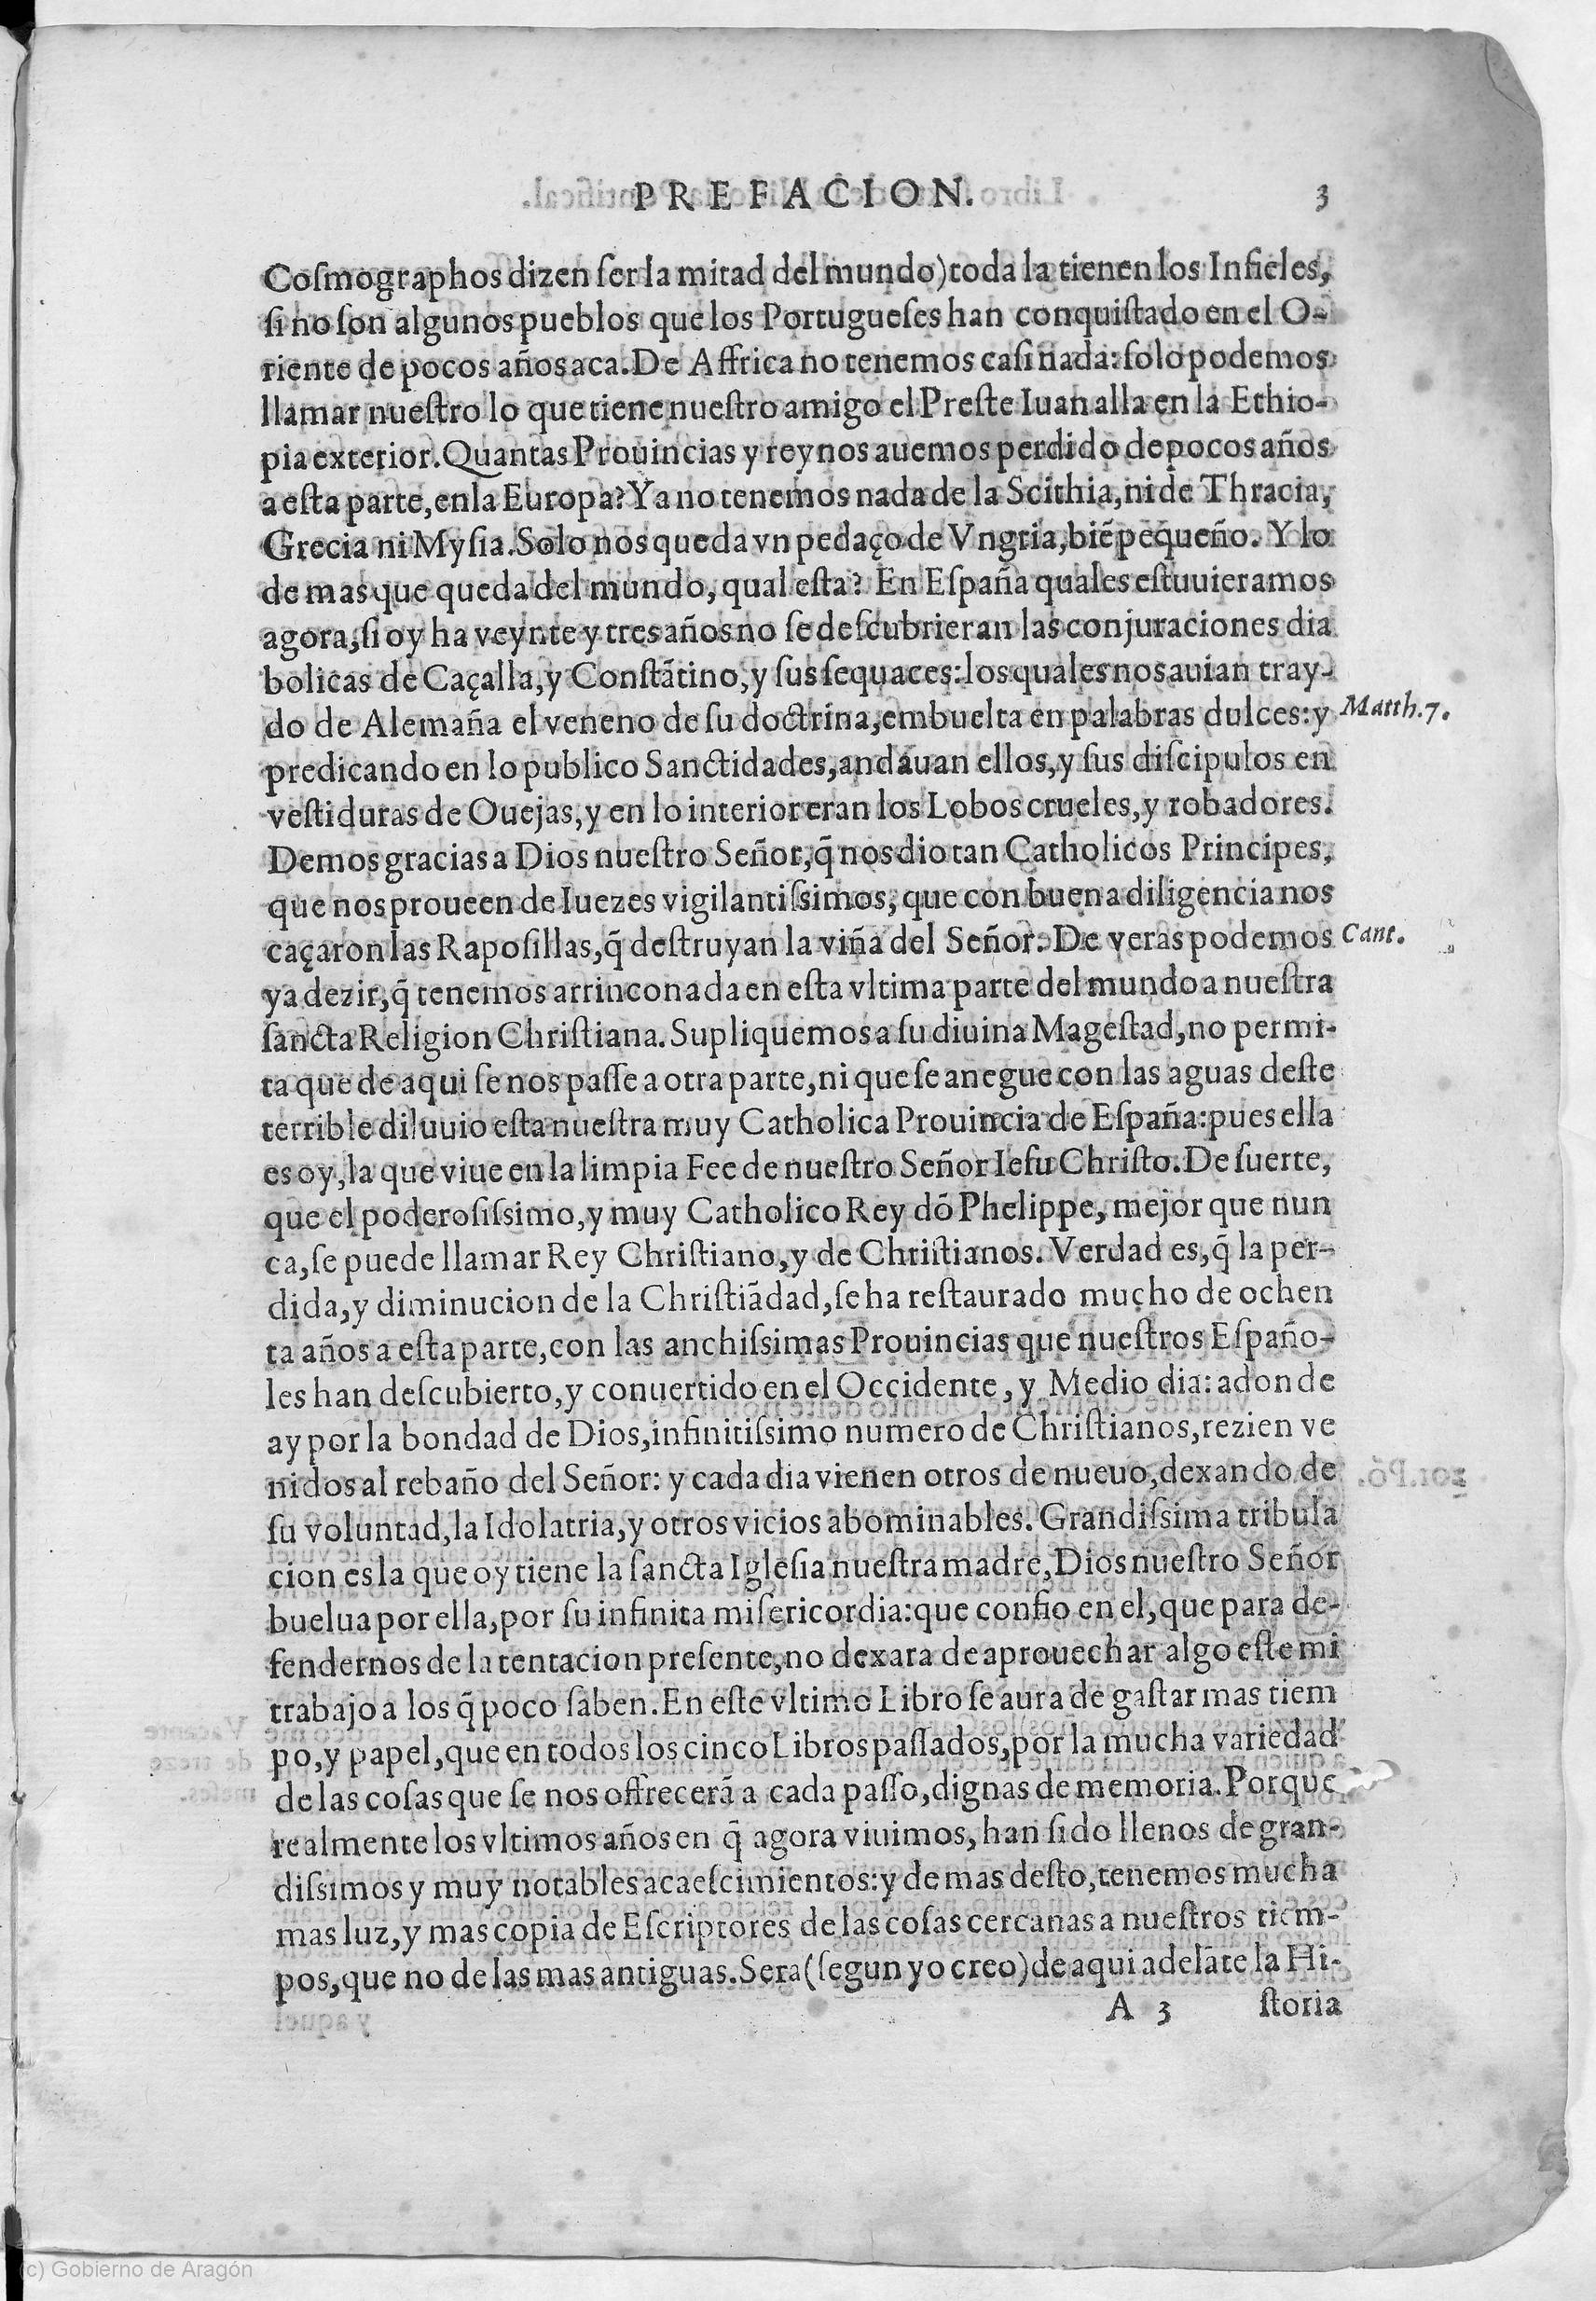 PREFACION. 3
Cosmographos dizen ser la mitad del mundo) toda la tienen los Infieles,
si no son algunos pueblos que los Portugueses han conquistado en el O-
riente de pocos años aca. De Affrica no tenemos casi nada: solo podemos
llamar nuestro lo que tiene nuestro amigo el Preste Iuan alla en la Ethio-
pia exterior. Quantas Prouincias y reynos auemos perdido de pocos años
a esta parte, en la Europa? Ya no tenemos nada de la Scithia, ni de Thracia,
Grecia ni Mysia. Solo nos queda vn pedaço de Vngria, biẽ pequeño. Y lo
de mas que queda del mundo, qual esta? En España quales estuuieramos
agora, si oy ha veynte y tres años no se descubrieran las conjuraciones dia
bolicas de Caçalla, y Constãtino, y sus sequaces: los quales nos auian tray-
do de Alemaña el veneno de su doctrina, embuelta en palabras dulces: y Matth. 7.
predicando en lo publico Sanctidades, andauan ellos, y sus discipulos en
vestiduras de Ouejas, y en lo interior eran los Lobos crueles, y robadores.
Demos gracias a Dios nuestro Señor, q̃ nos dio tan Catholicos Principes,
que nos proueen de Iuezes vigilantissimos, que con buena diligencia nos
caçaron las Raposillas, q̃ destruyan la viña del Señor. De veras podemos Cant.
ya dezir, q̃ tenemos arrinconada en esta vltima parte del mundo a nuestra
sancta Religion Christiana. Supliquemos a su diuina Magestad, no permi-
ta que de aqui se nos passe a otra parte, ni que se anegue con las aguas deste
terrible diluuio esta nuestra muy Catholica Prouincia de España: pues ella
es oy, la que viue en la limpia Fee de nuestro Señor Iesu Christo. De suerte,
que el poderosissimo, y muy Catholico Rey dõ Phelippe, mejor que nun
ca, se puede llamar Rey Christiano, y de Christianos. Verdad es, q̃ la per-
dida, y diminucion de la Christiãdad, se ha restaurado mucho de ochen
ta años a esta parte, con las anchissimas Prouincias que nuestros Españo-
les han descubierto, y conuertido en el Occidente, y Medio dia: adonde
ay por la bondad de Dios, infinitissimo numero de Christianos, rezien ve
nidos al rebaño del Señor: y cada dia vienen otros de nueuo, dexando de
su voluntad, la Idolatria, y otros vicios abominables. Grandissima tribula
cion es la que oy tiene la sancta Iglesia nuestra madre, Dios nuestro Señor
buelua por ella, por su infinita misericordia: que confio en el, que para de-
fendernos de la tentacion presente, no dexara de aprouechar algo este mi
trabajo a los q̃ poco saben. En este vltimo Libro se aura de gastar mas tiem
po, y papel, que en todos los cinco Libros passados, por la mucha variedad
de las cosas que se nos offrecerã a cada passo, dignas de memoria. Porque
realmente los vltimos años en q̃ agora viuimos, han sido llenos de gran-
dissimos y muy notables acaescimientos: y de mas desto, tenemos mucha
mas luz, y mas copia de Escriptores de las cosas cercanas a nuestros tiem-
pos, que no de las mas antiguas. Sera (segun yo creo) de aqui adelãte la Hi-
A 3 storia
(c) Gobierno de Aragón